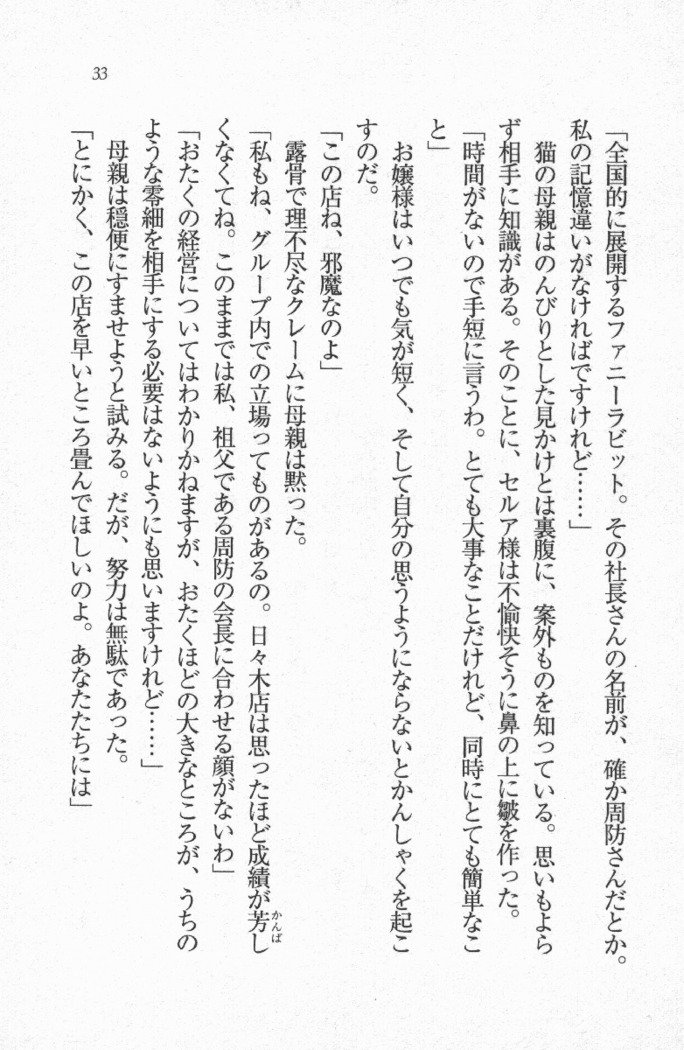 33
「全国的に展開するファニーラビット。その社長さんの名前が、確か周防さんだとか。
私の記憶違いがなければですけれど……」
猫の母親はのんびりとした見かけとは裏腹に、案外ものを知っている。思いもよら
ず相手に知識がある。そのことに、セルア様は不愉快そうに鼻の上に皺を作った。
「時間がないので手短に言うわ。とても大事なことだけれど、同時にとても簡単なこ
と」
お嬢様はいつでも気が短く、そして自分の思うようにならないとかんしゃくを起こ
すのだ。
「この店ね、邪魔なのよ」
露骨で理不尽なクレームに母親は黙った。
「私もね、グループ内での立場ってものがあるの。日々木店は思ったほど成績が芳し
かんば
くなくてね。このままでは私、祖父である周防の会長に合わせる顔がないわ」
「おたくの経営についてはわかりかねますが、おたくほどの大きなところが、うちの
ような零細を相手にする必要はないようにも思いますけれど……」
母親は穏便にすませようと試みる。だが、努力は無駄であった。
「とにかく、この店を早いところ畳んでほしいのよ。あなたたちには」